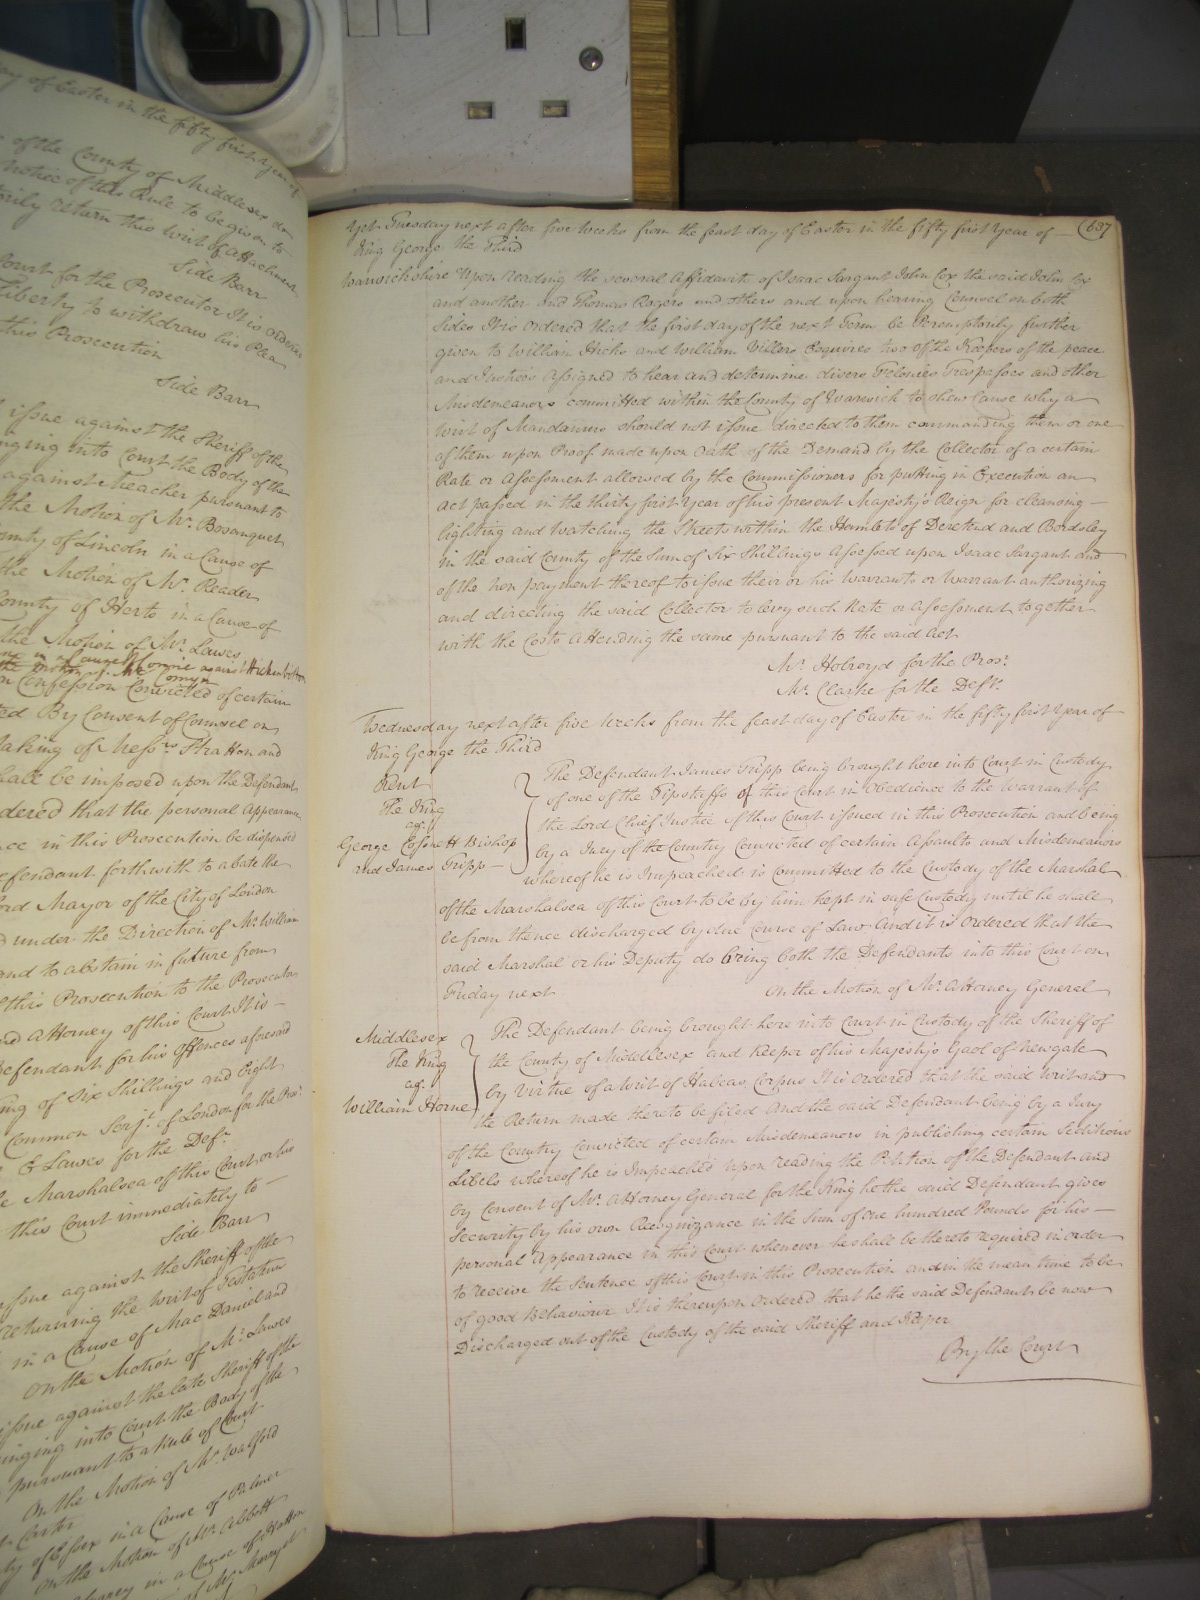 ay of Easter in the fifty first Year of
of the County of Middlesex do
Notice of this Rule to be given to
return this writ of Attachment
Side Barr
Court for the Prosecutor It is ordered
Liberty to withdraw his Plea
this Prosecution
Side Barr
issue against the Sheriff of the
nging into Court the Body of the
against Meacher pursuant to
the Motion of Mr. Bosanquet
ounty of Lincoln in a Cause of
the Motion of Mr. Reader
County of Herts in a Cause of
the Motion of Mr. Lawes
n Confession Convicted of certain
ted By Consent of Counsel on
taking of Messrs. Stratton and
hall be imposed upon the Defendant
dered that the personal Appearance
nce in this Prosecution be dispensed
efendant forthwith to abate the
ord Mayor of the City of London
d under the Direction of Mr. William
and to abstain in future from
this Prosecution to the Prosecutor
nd Attorney of this Court It is
Defendant for his Offences aforesaid
ing of Six Shillings and Eight
Common Serjt. of London for the Prosr.
E Lawes for the Deft.
e Marshalsea of this Court or his
this Court immediately to
Side Barr
issue against the Sheriff of the
returning the writ of Testatum
in a Cause of Mac Daniel and
On the Motion of Mr. Lawes
issue against the late Sheriff of the
inging into Court the Body of the
pursuant to a Rule of Court
On the Motion of Mr. Walford
Carter
ty of Essex in a Cause of Palmer
On the Motion of Mr. Abbott
in a Cause of Hatton
of Mr. Marryat
Yet Tuesday next after five Weeks from the feast day of Easter in the fifty first Year of (637
King George the Third
Warwickshire Upon reading the several Affidavits of Isaac Sargant John Cox the said John Cox
and another and Thomas Rogers and others and upon hearing Counsel on both
Sides It is ordered that the first day of the next Term be Peremptorily further
given to William Hicks and William Villers Esquires two of the Keepers of the peace
and Justices Assigned to hear and determine divers Felonies Trespasses and other
Misdemeanors committed within the County of Warwick to shew Cause why a
Writ of Mandamus should not issue directed to them commanding them or one
of them upon Proof made upon Oath of the Demand by the Collector of a certain
Rate or Assessment allowed by the Commissioners for putting in Execution an
Act passed in the thirty first Year of his present Majesty's Reign for cleansing
lighting and Watching the Streets within the Hamlets of Deretend and Bordsley
in the said County of the Sum of Six Shillings Assessed upon Isaac Sargant and
of the Non payment thereof to issue their or his Warrants or Warrant authorizing
and directing the said Collector to levy such Rate or Assessment together
with the Costs attending the same pursuant to the said Act
Mr. Holroyd for the Prosr.
Mr. Clarke for the Deft.
Wednesday next after five Weeks from the feast day of Easter in the fifty first Year of
King George the Third
Kent
The King
agt.
George Cossnett Bishop
and James Tripp
The Defendant James Tripp being brought here into Court in Custody
of one of the Tipstaffs of this Court in Obedience to the Warrant of
the Lord Chief Justice of this Court issued in this Prosecution and being
by a Jury of the Country Convicted of certain Assaults and Misdemeanors
whereof he is Impeached is Committed to the Custody of the Marshal
of the Marshalsea of this Court to be by him kept in safe Custody until he shall
be from thence discharged by due Course of Law And it is Ordered that the
said Marshal or his Deputy do bring both the Defendants into this Court on
Friday next
On the Motion of Mr. Attorney General
Middlesex
The King
agt.
William Horne
The Defendant being brought here into Court in Custody of the Sheriff of
the County of Middlesex and Keeper of his Majesty's Gaol of Newgate
by Virtue of a Writ of Habeas Corpus It is Ordered that the said Writ and
the Return made thereto be filed And the said Defendant being by a Jury
of the Country Convicted of certain Misdemeanors in publishing certain Seditious
Libels whereof he is Impeached upon reading the Petition of the Defendant and
by Consent of Mr. Attorney General for the King he the said Defendant gives
Security by his own Recognizance in the Sum of one hundred Pounds for his
personal Appearance in this Court whenever he shall be thereto required in order
to receive the Sentence of this Court in this Prosecution and in the mean time to be
of good Behaviour It is thereupon Ordered that he the said Defendant be now
Discharged out of the Custody of the said Sheriff and Keeper
By the Court